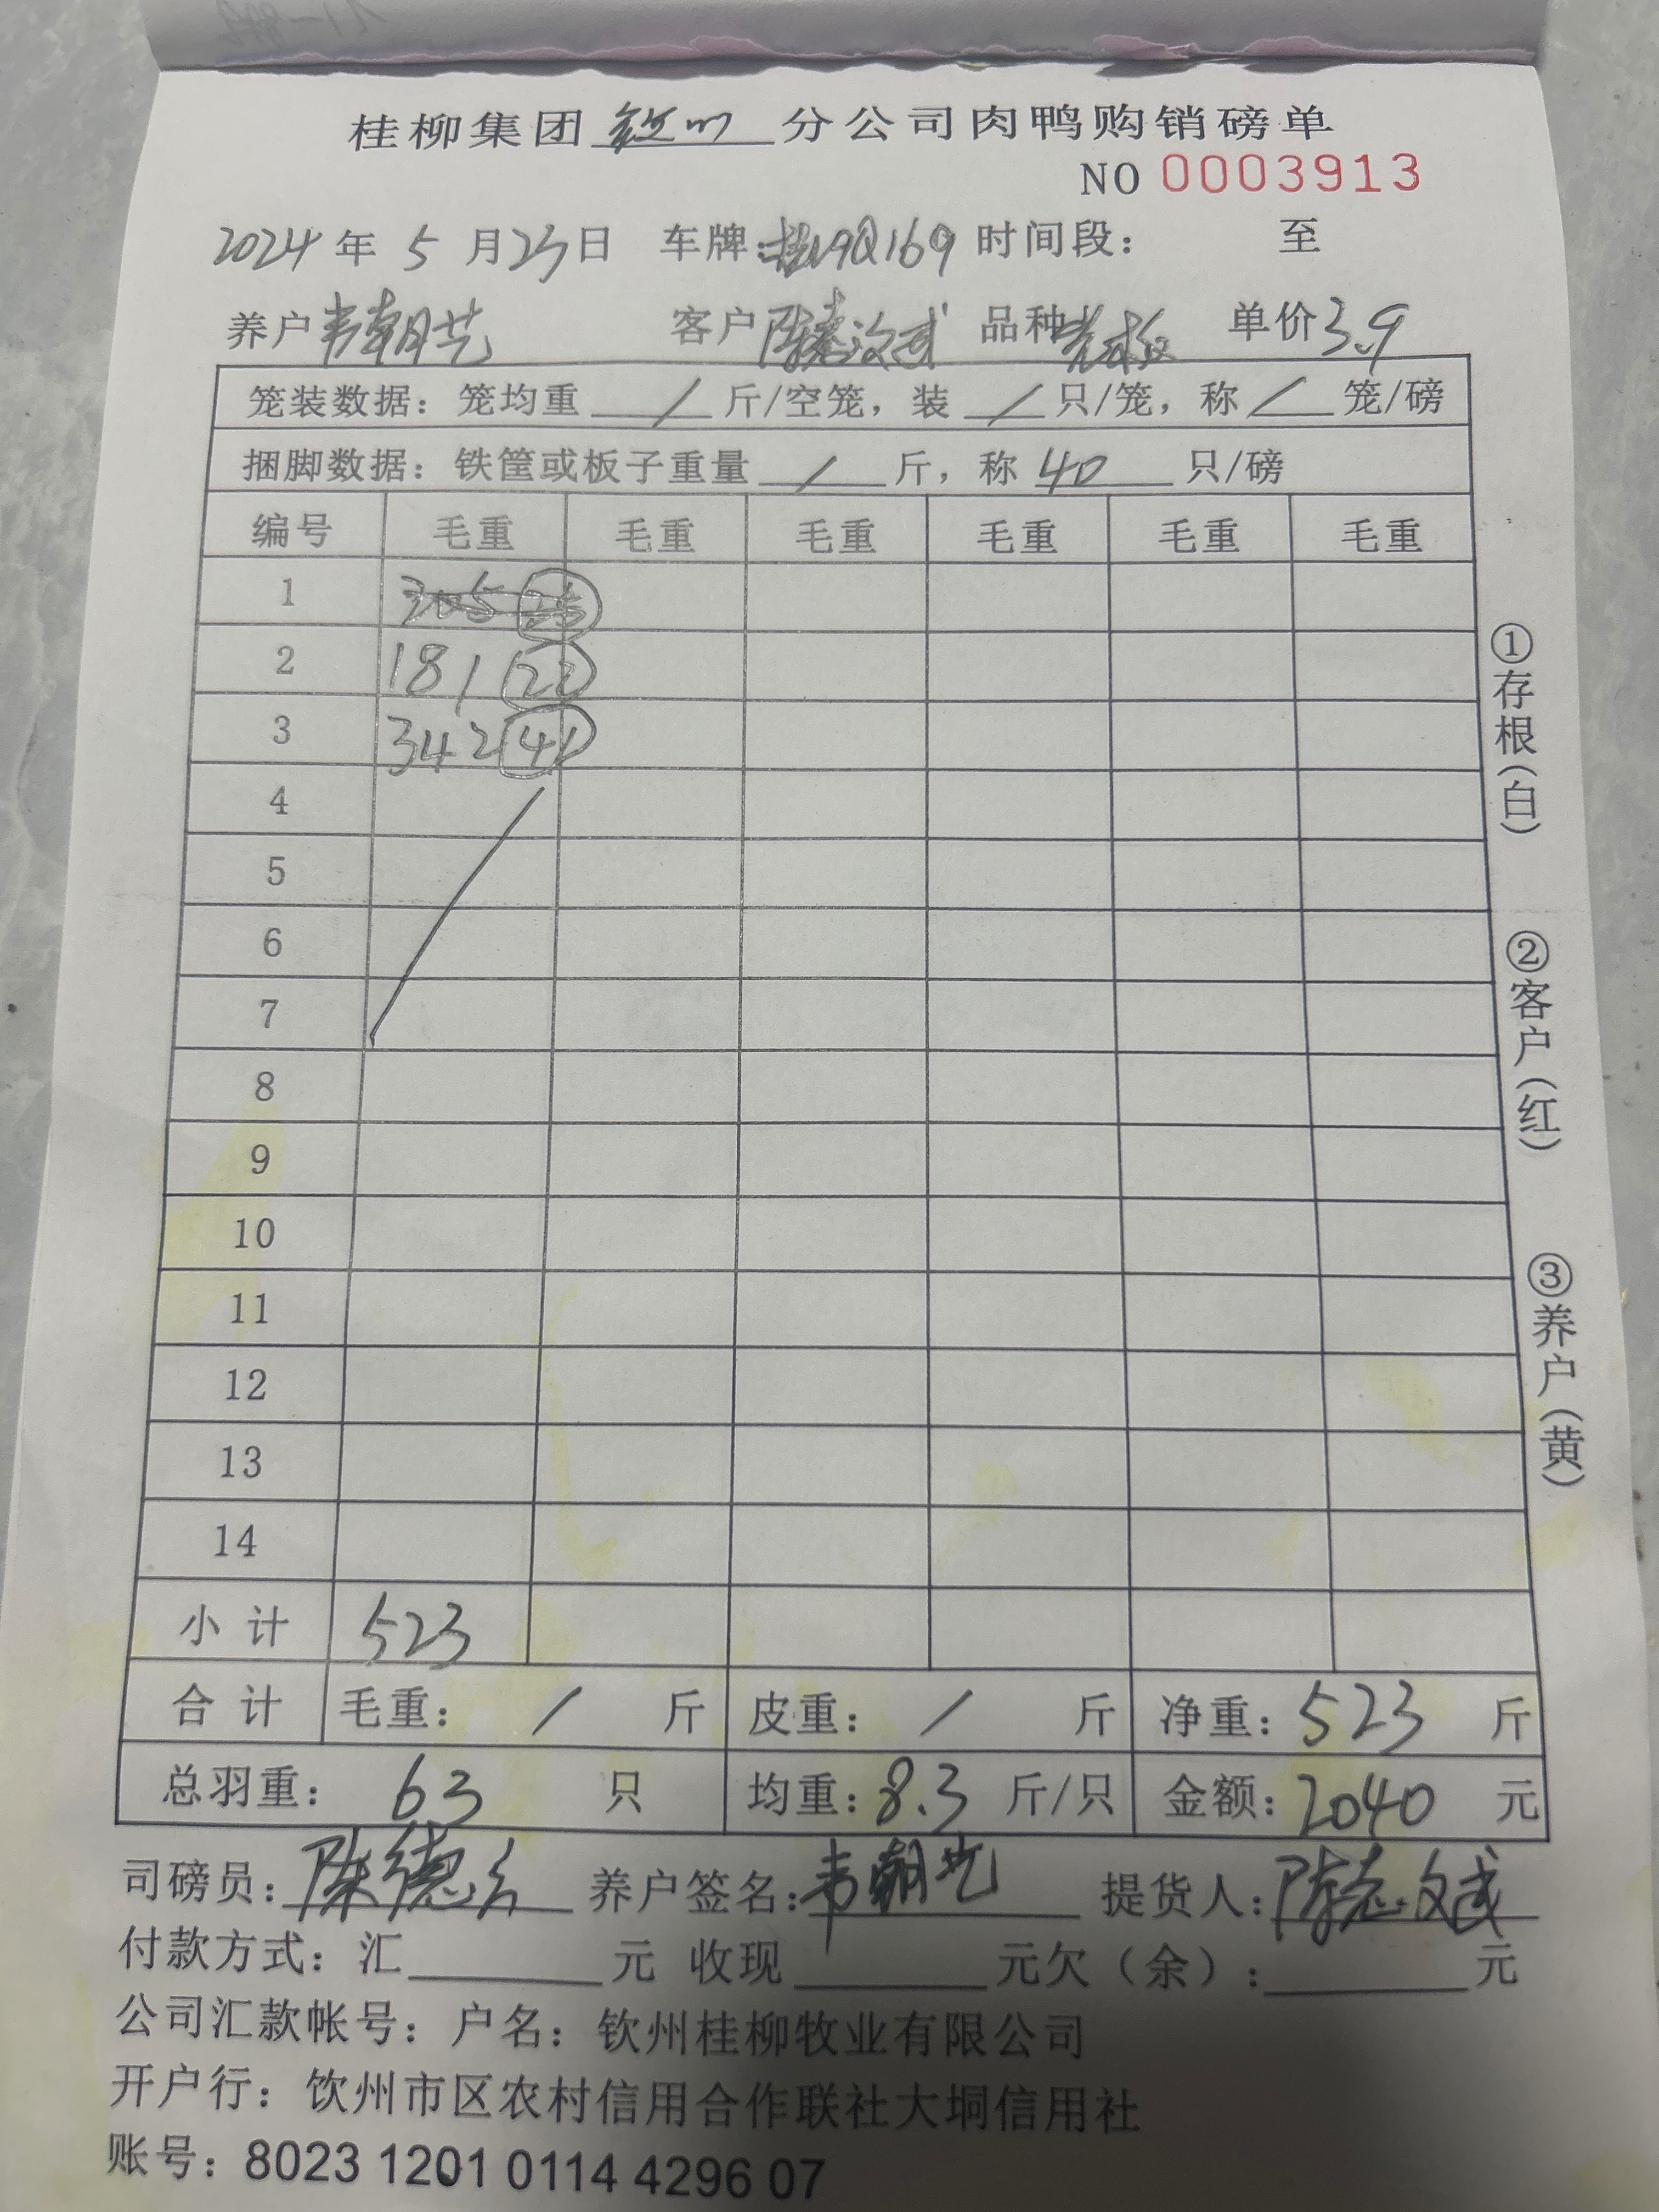 桂柳集团钦州分公司肉鸭购销磅单
NO 0003913
2024年5月23日 车牌:桂A9Q169 时间段: 至
养户韦朝艺 客户陈 品种 单价3.9
笼装数据: 笼均重 / 斤/空笼, 装 / 只/笼, 称 / 笼/磅
捆脚数据: 铁筐或板子重量 / 斤, 称 40 只/磅
编号 毛重 毛重 毛重 毛重 毛重 毛重
1 305
2 181 22
3 342 41
4
5
6
7
8
9
10
11
12
13
14
小计 523
合计 毛重: / 斤 皮重: / 斤 净重: 523 斤
总羽重: 63 只 均重: 8.3 斤/只 金额: 2040 元
司磅员: 陈德 养户签名: 韦朝艺 提货人: 陈
付款方式: 汇 元 收现 元欠(余): 元
公司汇款帐号: 户名: 钦州桂柳牧业有限公司
开户行: 钦州市区农村信用合作联社大垌信用社
账号: 8023 1201 0114 4296 07
①存根(白)
②客户(红)
③养户(黄)